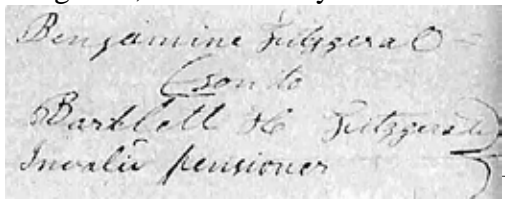 Benjamine Fitzgerald
(son to
Bartlett H Fitzgerald)
Invalid pensioner